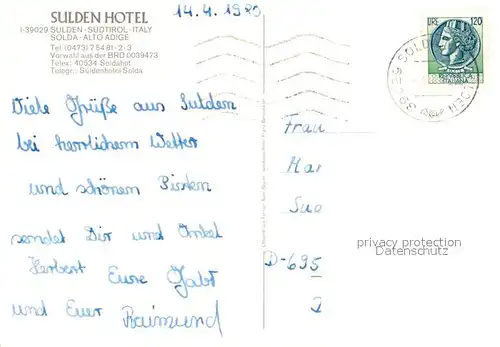 SULDEN HOTEL
I-39029 SULDEN - SÜDTIROL - ITALY
SOLDA - ALTO ADIGE
Tel (0473) 75481-2-3
Vorwahl aus der BRD 0039473
Telex: 40534 Soldahot
Telegr.: Suldenhotel Solda
14.4.1980
LIRE 120
Viele Grüße aus Sulden
bei herrlichem Wetter
und schönen Pisten
sendet Dir und Onkel
Herbert Eure Gabi
und Euer Raimund
Frau
Har
Sus
D-695
privacy protection
Datenschutz